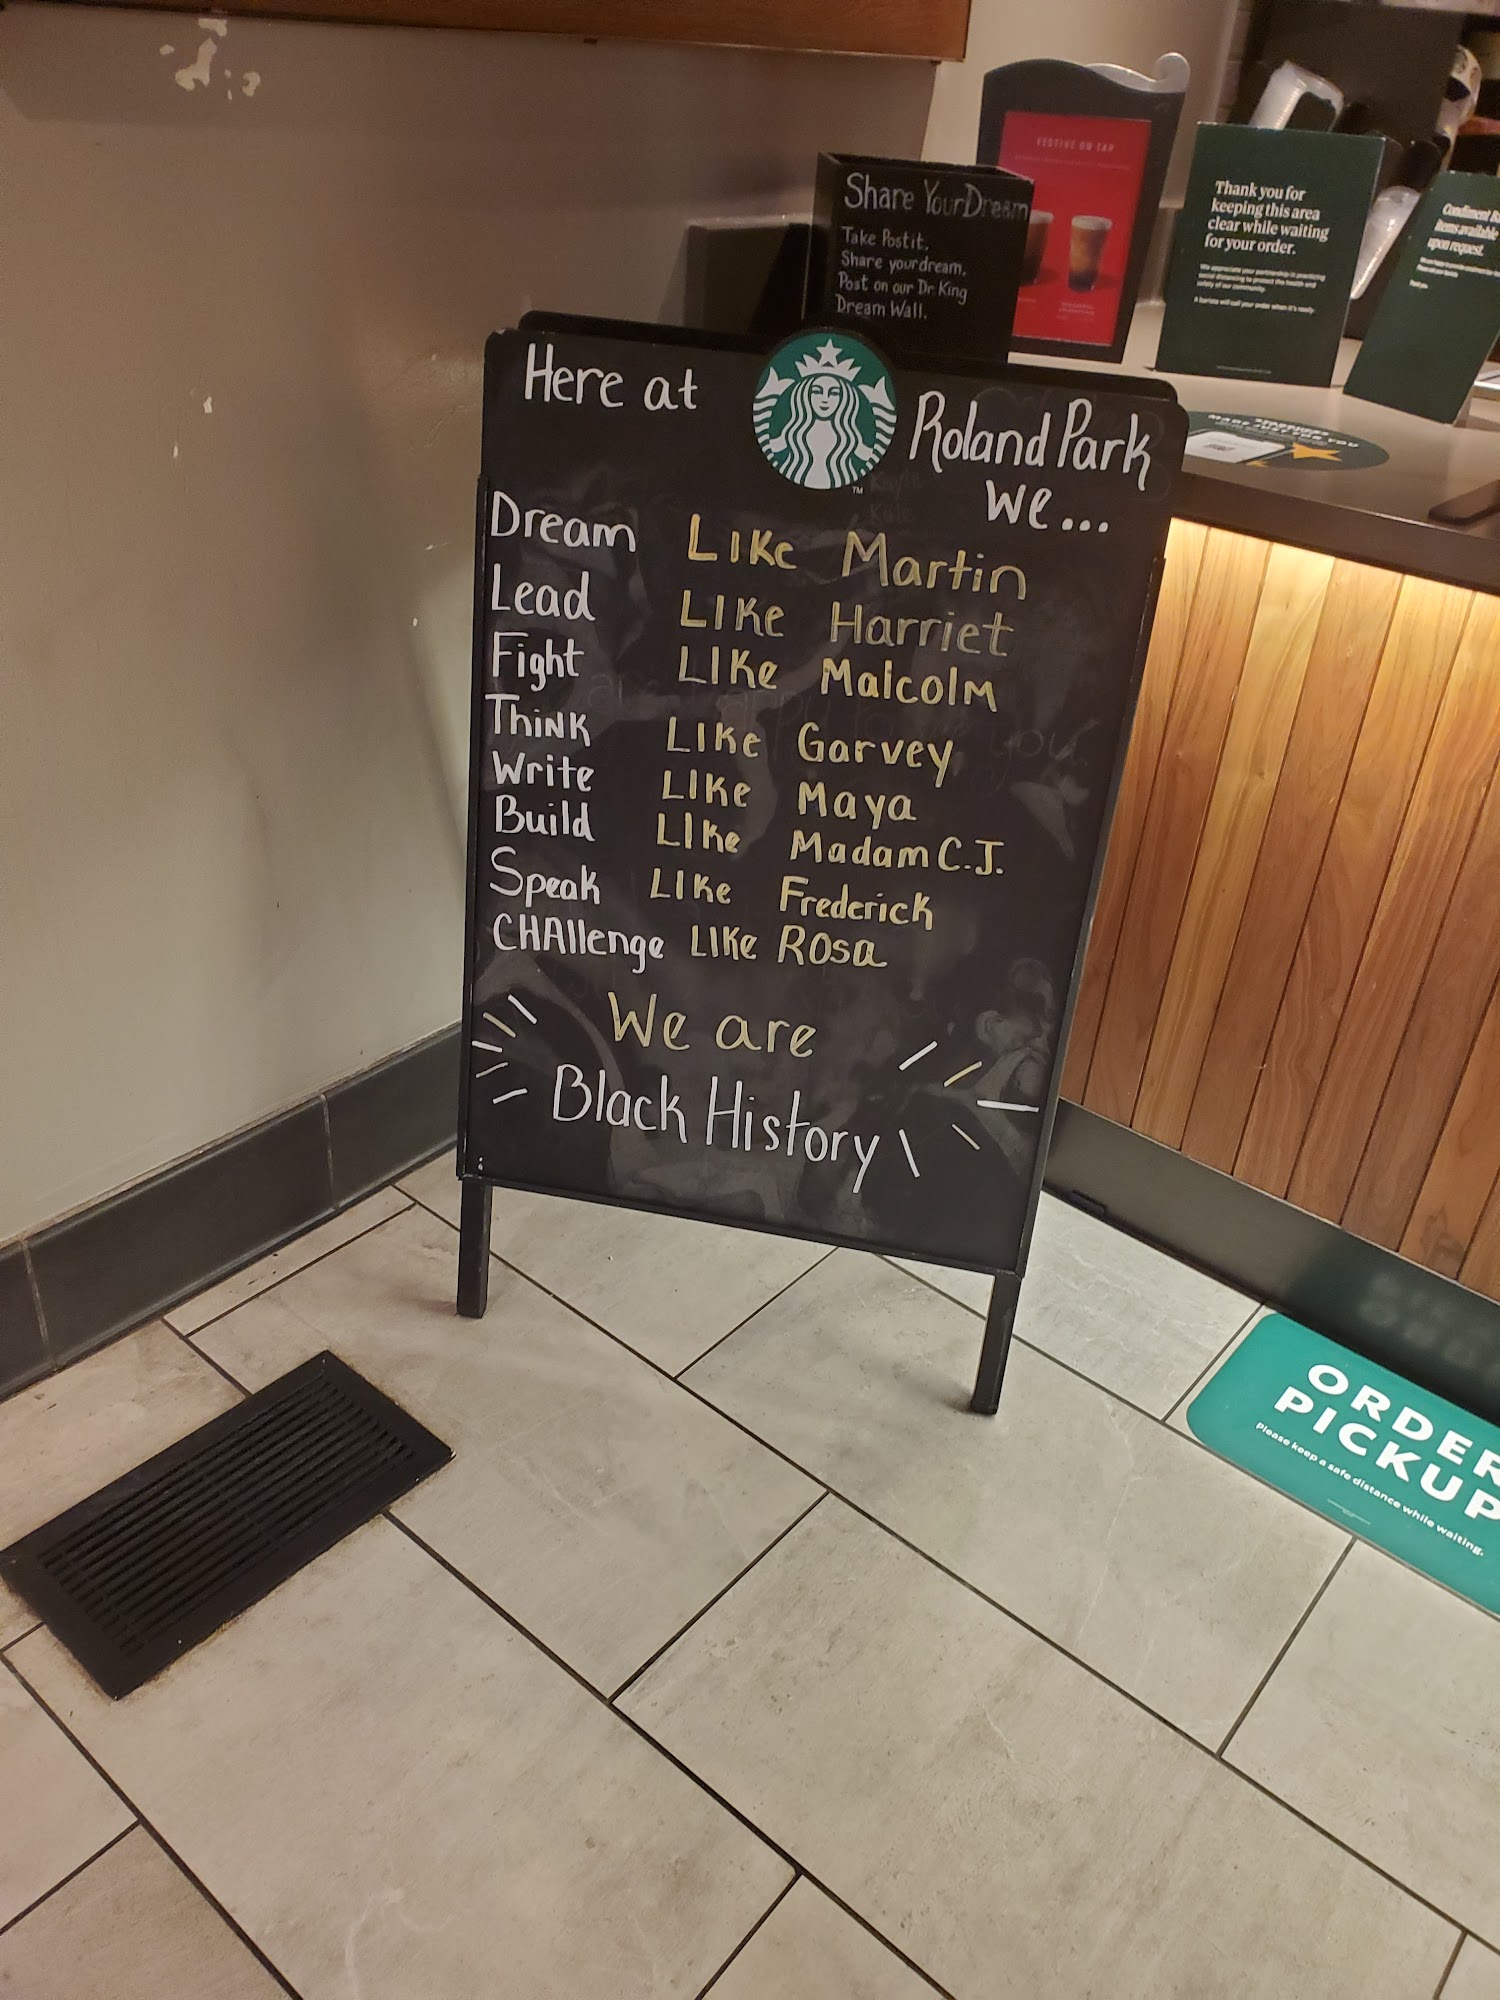 FESTIVE ON TAP
Share Your Dream
Take Postit.
Share your dream.
Post on our Dr. King
Dream Wall.
Thank you for
keeping this area
clear while waiting
for your order.
We appreciate your partnership in practicing
social distancing to protect the health and
safety of our community.
A barista will call your order when it's ready.
items available
upon request.
MADE JUST FOR YOU
Here at
Roland Park
We...
Dream Like Martin
Lead Like Harriet
Fight Like Malcolm
Think Like Garvey
Write Like Maya
Build Like Madam C.J.
Speak Like Frederick
CHAllenge Like ROsa
We are
Black History
TM
ORDER
PICKUP
Please keep a safe distance while waiting.